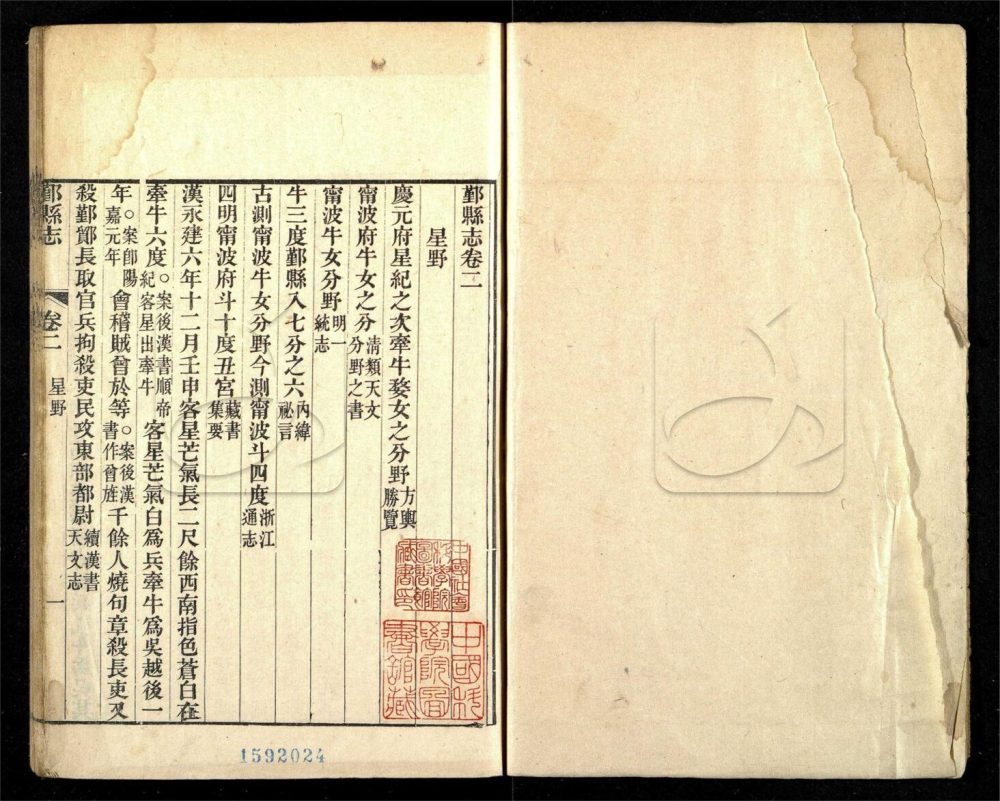 鄞縣志卷二
星野
慶元府星紀之次牽牛婺女之分野方輿勝覽
甯波府牛女之分清類天文分野之書
甯波牛女分野明一統志
牛三度鄞縣入七分之六內緯祕言
古測甯波牛女分野今測甯波斗四度浙江通志
四明甯波府斗十度丑宮藏書集要
漢永建六年十二月壬申客星芒氣長二尺餘西南指色蒼白在
牽牛六度○案後漢書順帝紀客星出牽牛客星芒氣白爲兵牽牛爲吳越後一
年○案卽陽嘉元年會稽賊曾於等○案後漢書作曾旌千餘人燒句章殺長吏又
殺鄞鄮長取官兵拘殺吏民攻東部都尉續漢書天文志
鄞縣志
卷二
星野
一
中國科學院圖書館藏
1592024